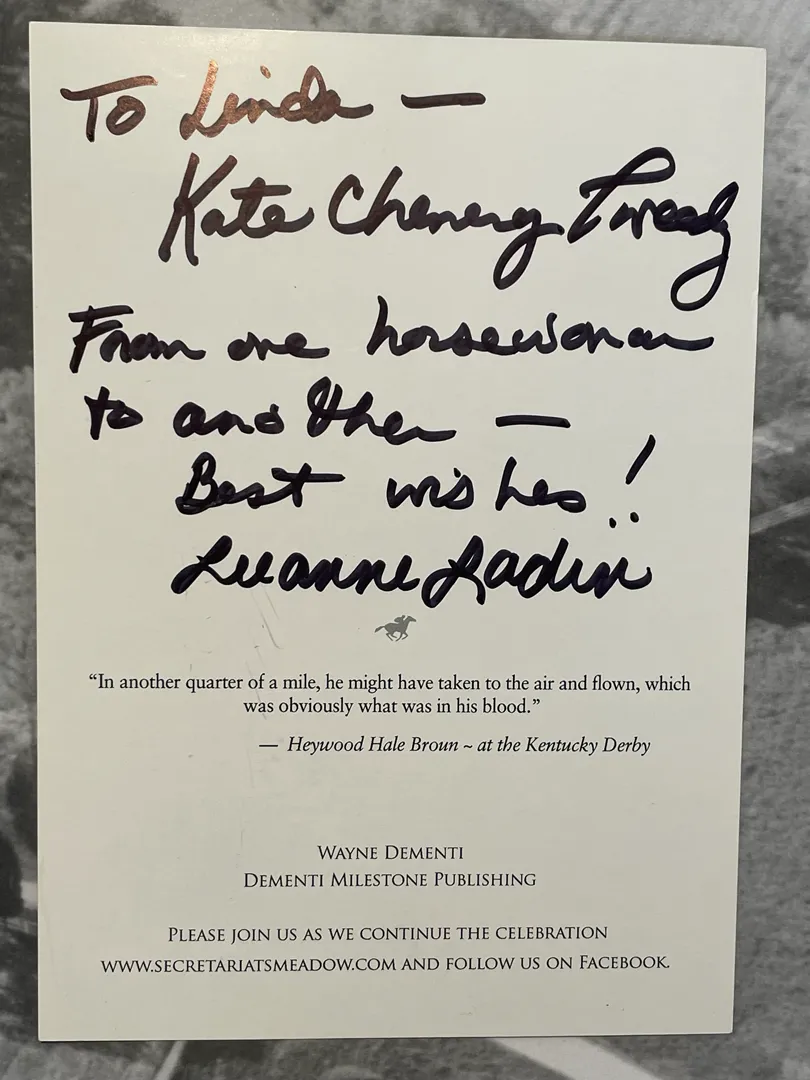 To Linda —
Kate Chenery Tweedy
From one horsewoman
to another —
Best wishes!
Leeanne Ladin
“In another quarter of a mile, he might have taken to the air and flown, which
was obviously what was in his blood.”
— Heywood Hale Broun ~ at the Kentucky Derby
Wayne Dementi
Dementi Milestone Publishing
Please join us as we continue the celebration
www.secretariatsmeadow.com and follow us on Facebook.